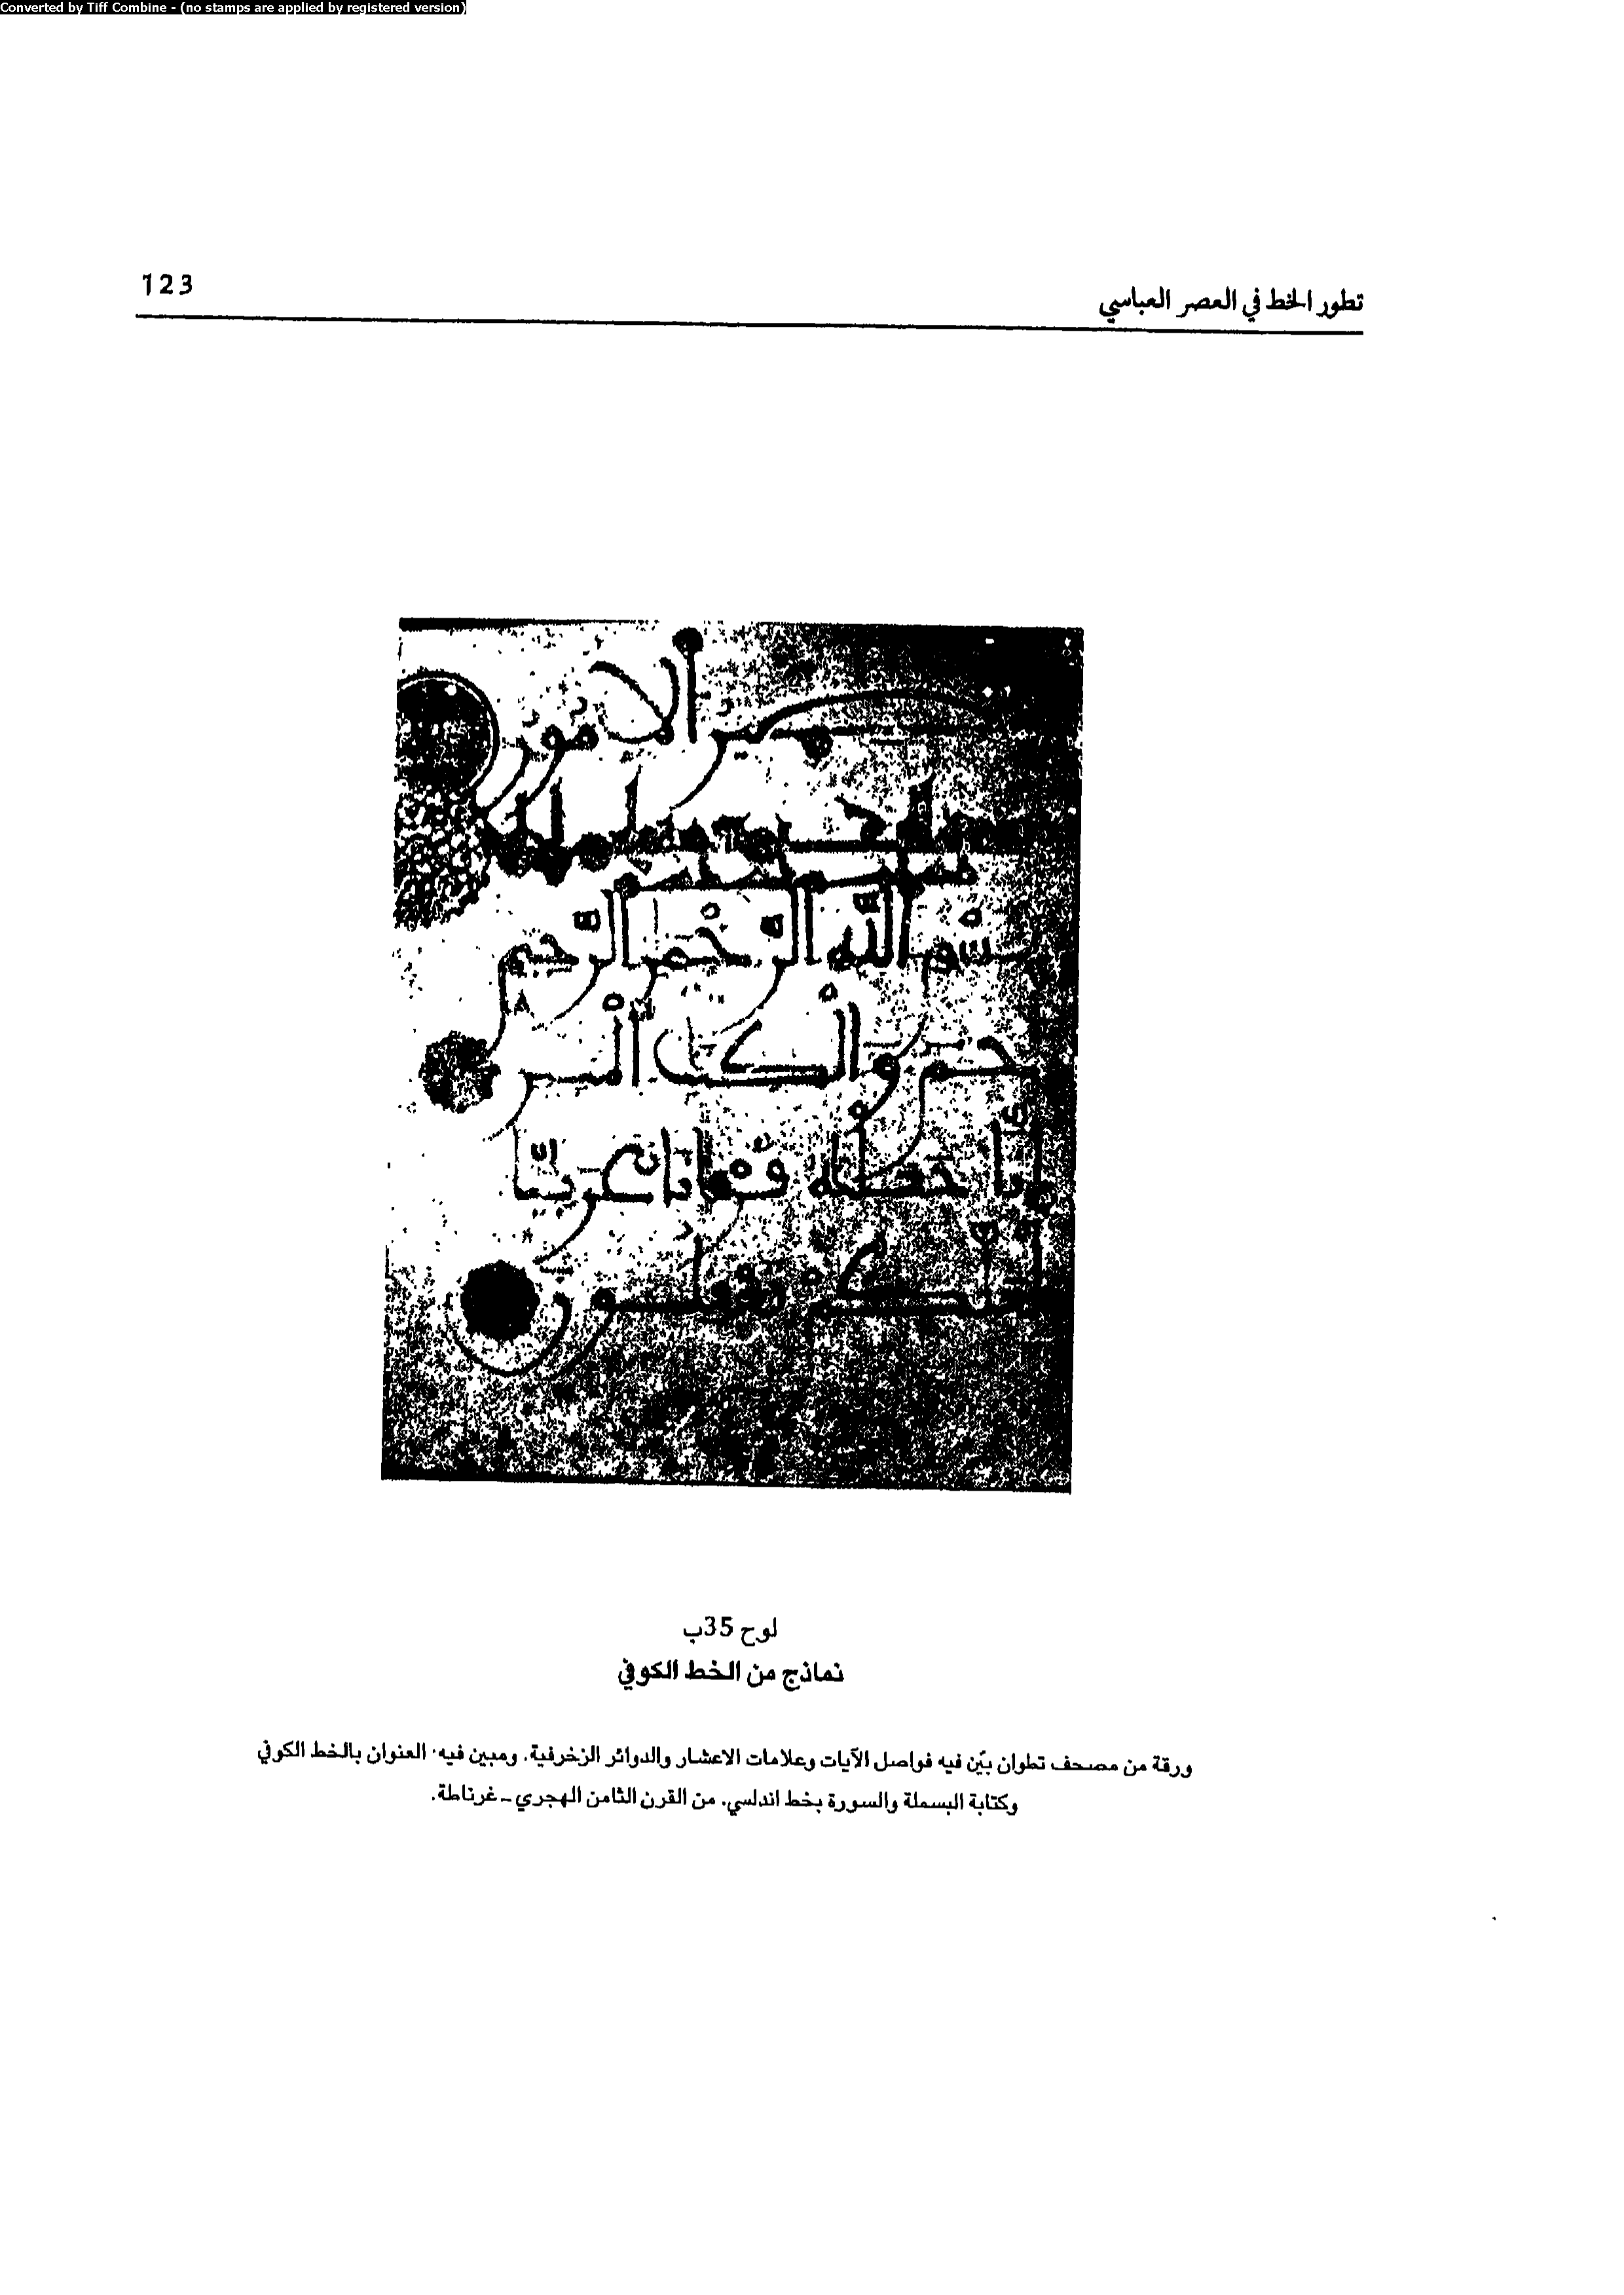 Converted by Tiff Combine - (no stamps are applied by registered version)
تطور الخط في العصر العباسي 123
تصير الامور
بسم الله الرحمن الرحيم
حم والكتب المبين
انا جعلنه قرانا عربيا
لعلكم تعقلون
لوح 35ب
نماذج من الخط الكوفي
ورقة من مصحف تطوان بيّن فيه فواصل الآيات وعلامات الاعشار والدوائر الزخرفية. ومبين فيه العنوان بالخط الكوفي
وكتابة البسملة والسورة بخط اندلسي. من القرن الثامن الهجري - غرناطة.